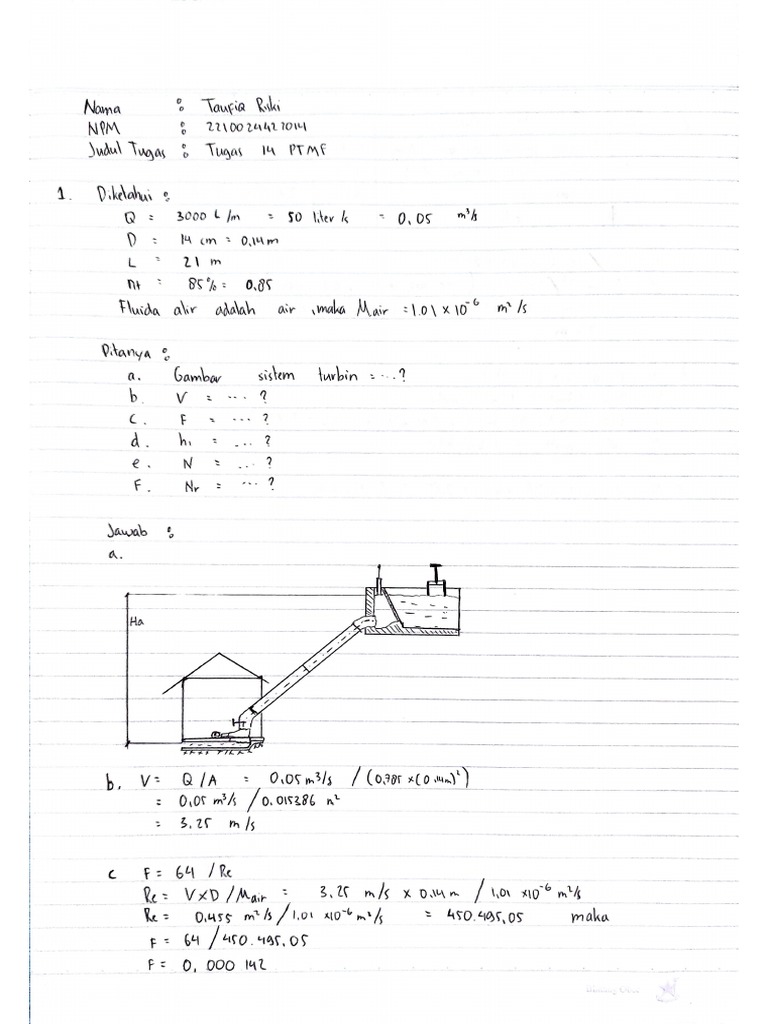 Nama : Taufia Riski
NPM : 2210024427014
Judul Tugas : Tugas 14 PTMF
1. Dikelahui :
Q = 3000 L/m = 50 liter/s = 0,05 m³/s
D = 14 cm = 0,14 m
L = 21 m
nt = 85% = 0,85
Fluida alir adalah air, maka Mair = 1.01 x 10⁻⁶ m²/s
Ditanya :
a. Gambar sistem turbin = ...?
b. V = ... ?
c. F = ... ?
d. h₁ = ... ?
e. N = ... ?
F. Nr = ... ?
Jawab :
a.
Ha
b. V = Q/A = 0,05 m³/s / (0,785 x (0,14m)²)
= 0,05 m³/s / 0.015386 n²
= 3.25 m/s
c F = 64 /Re
Re = VxD/Mair = 3.25 m/s x 0.14 m / 1,01 x10⁻⁶ m²/s
Re = 0,455 m²/s / 1,01 x10⁻⁶ m²/s = 450.495,05 maka
F = 64 / 450.495,05
F = 0,000 142